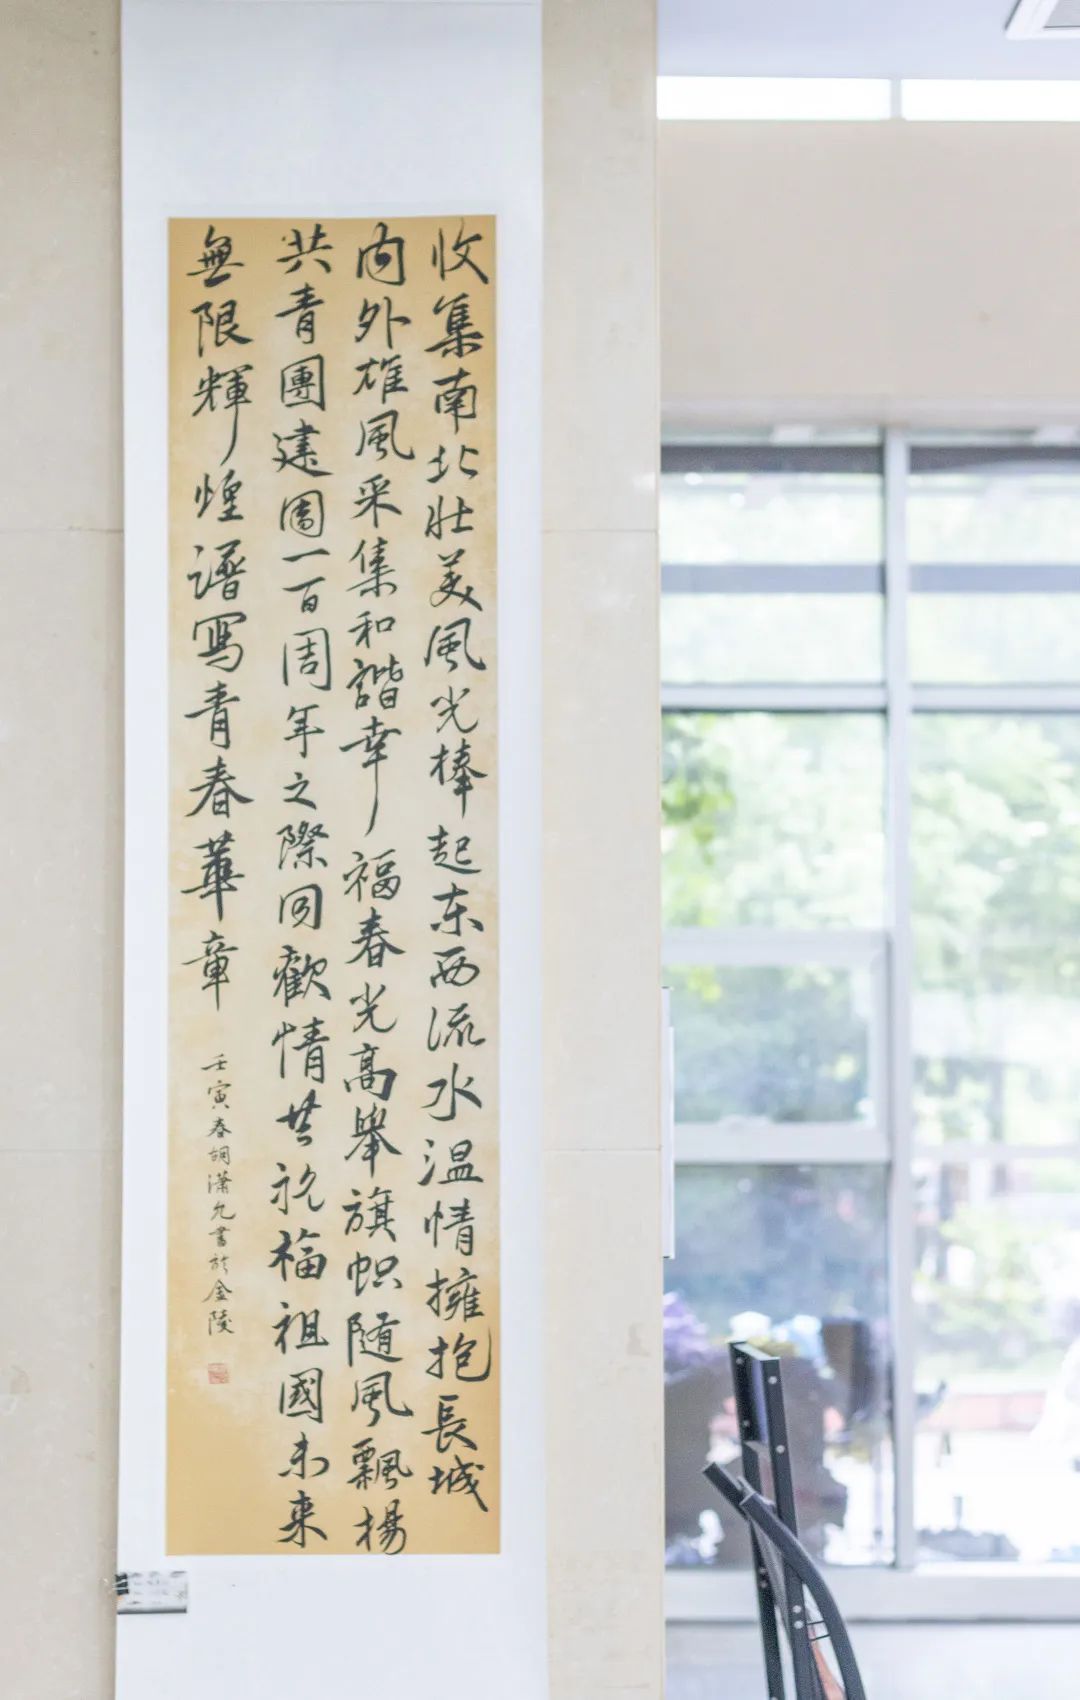 收集南北壯美風光棒起东西流水温情擁抱長城
内外雄風采集和諧幸福春光高舉旗帜随風飄揚
共青團建團一百周年之際同歡情共祝福祖國未来
無限輝煌譜寫青春華章
壬寅春胡瀟允書於金陵